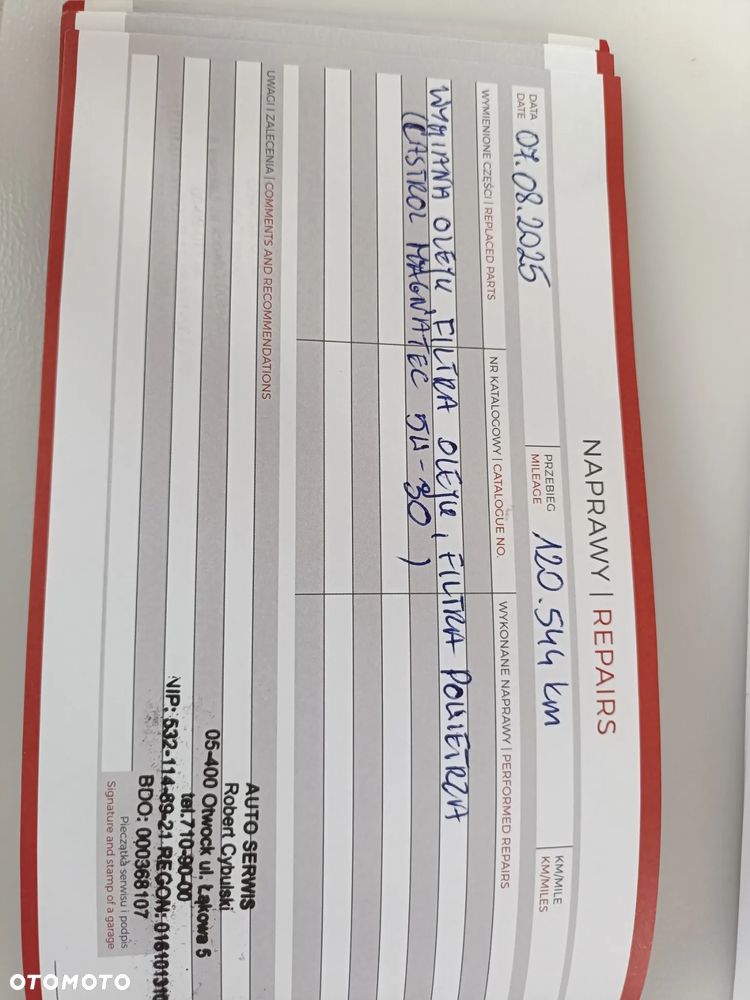 NAPRAWY | REPAIRS
DATA
DATE
07.08.2025
PRZEBIEG
MILEAGE
120.544 km
KM/MILE
KM/MILES
WYMIENIONE CZĘŚCI | REPLACED PARTS
NR KATALOGOWY | CATALOGUE NO.
WYKONANE NAPRAWY | PERFORMED REPAIRS
WYMIANA OLEJU, FILTRA OLEJU i FILTRA POWIETRZA
(CASTROL MAGNATEC 5W-30)
UWAGI I ZALECENIA | COMMENTS AND RECOMMENDATIONS
AUTO SERWIS
Robert Cybulski
05-400 Otwock ul. Łąkowa 5
tel.710-90-00
NIP: 532-114-89-21 REGON: 016101310
BDO: 000368107
Pieczątka serwisu i podpis
Signature and stamp of a garage
OTOMOTO